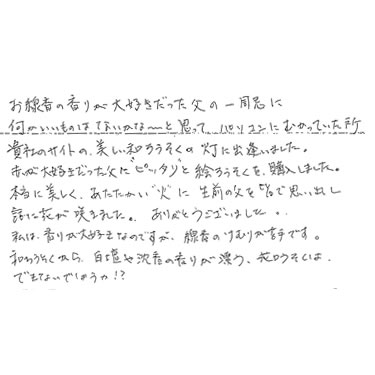 お線香の香りが大好きだった父の一周忌に
何かいいものはないかな〜と思って、パソコンにむかっていた所
貴社のサイトの、美しい和ろうそくの灯に出逢いました。
赤が大好きだった父に"ピッタリ"と絵ろうそくを、購入しました。
本当に美しく、あたたかい"火"に生前の父を 思い出し
話に花が咲きました。ありがとうございました。
私は、香りが大好きなのですが、線香のけむりが苦手です。
和ろうそくから、白檀や沈香の香りが漂う、和ろうそくは、
できないでしょうか!?